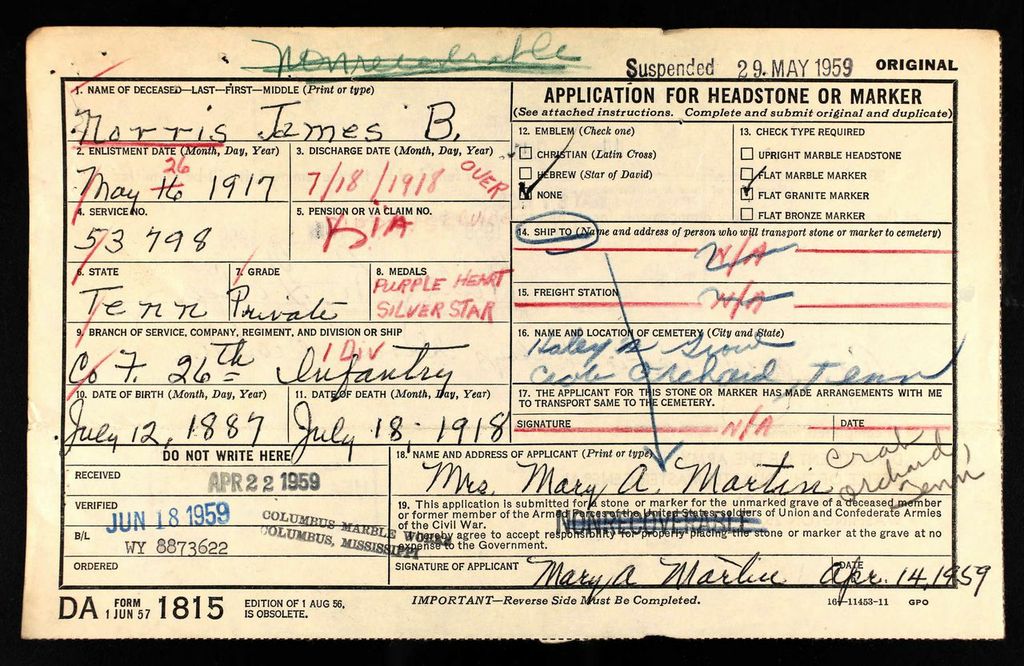 Nonrecoverable
Suspended 29. MAY 1959 ORIGINAL
1. NAME OF DECEASED—LAST—FIRST—MIDDLE (Print or type)
Norris James B.
APPLICATION FOR HEADSTONE OR MARKER
(See attached instructions. Complete and submit original and duplicate)
2. ENLISTMENT DATE (Month, Day, Year)
May 16 26 1917
3. DISCHARGE DATE (Month, Day, Year)
7/18/1918 OVER
12. EMBLEM (Check one)
CHRISTIAN (Latin Cross)
HEBREW (Star of David)
NONE
13. CHECK TYPE REQUIRED
UPRIGHT MARBLE HEADSTONE
FLAT MARBLE MARKER
FLAT GRANITE MARKER
FLAT BRONZE MARKER
4. SERVICE NO.
53 798
5. PENSION OR VA CLAIM NO.
KIA
14. SHIP TO (Name and address of person who will transport stone or marker to cemetery)
N/A
6. STATE
Tenn
7. GRADE
Private
8. MEDALS
PURPLE HEART
SILVER STAR
15. FREIGHT STATION
N/A
9. BRANCH OF SERVICE, COMPANY, REGIMENT, AND DIVISION OR SHIP
1 Div
Co F. 26th Infantry
16. NAME AND LOCATION OF CEMETERY (City and State)
Haley's Grove
Crab Orchard, Tenn
10. DATE OF BIRTH (Month, Day, Year)
July 12, 1887
11. DATE OF DEATH (Month, Day, Year)
July 18, 1918
17. THE APPLICANT FOR THIS STONE OR MARKER HAS MADE ARRANGEMENTS WITH ME
TO TRANSPORT SAME TO THE CEMETERY.
SIGNATURE N/A DATE
DO NOT WRITE HERE
RECEIVED APR 22 1959
VERIFIED JUN 18 1959
B/L WY 8873622
COLUMBUS MARBLE WORKS
COLUMBUS, MISSISSIPPI
ORDERED
18. NAME AND ADDRESS OF APPLICANT (Print or type)
Mrs. Mary A. Martin Crab
Orchard,
Tenn
19. This application is submitted for a stone or marker for the unmarked grave of a deceased member
or former member of the Armed Forces of the United States, soldiers of Union and Confederate Armies
of the Civil War.
NONRECOVERABLE
I hereby agree to accept responsibility for properly placing the stone or marker at the grave at no
expense to the Government.
SIGNATURE OF APPLICANT Mary A Martin DATE Apr. 14, 1959
DA FORM 1 JUN 57 1815
EDITION OF 1 AUG 56,
IS OBSOLETE.
IMPORTANT—Reverse Side Must Be Completed.
16—11453-11 GPO